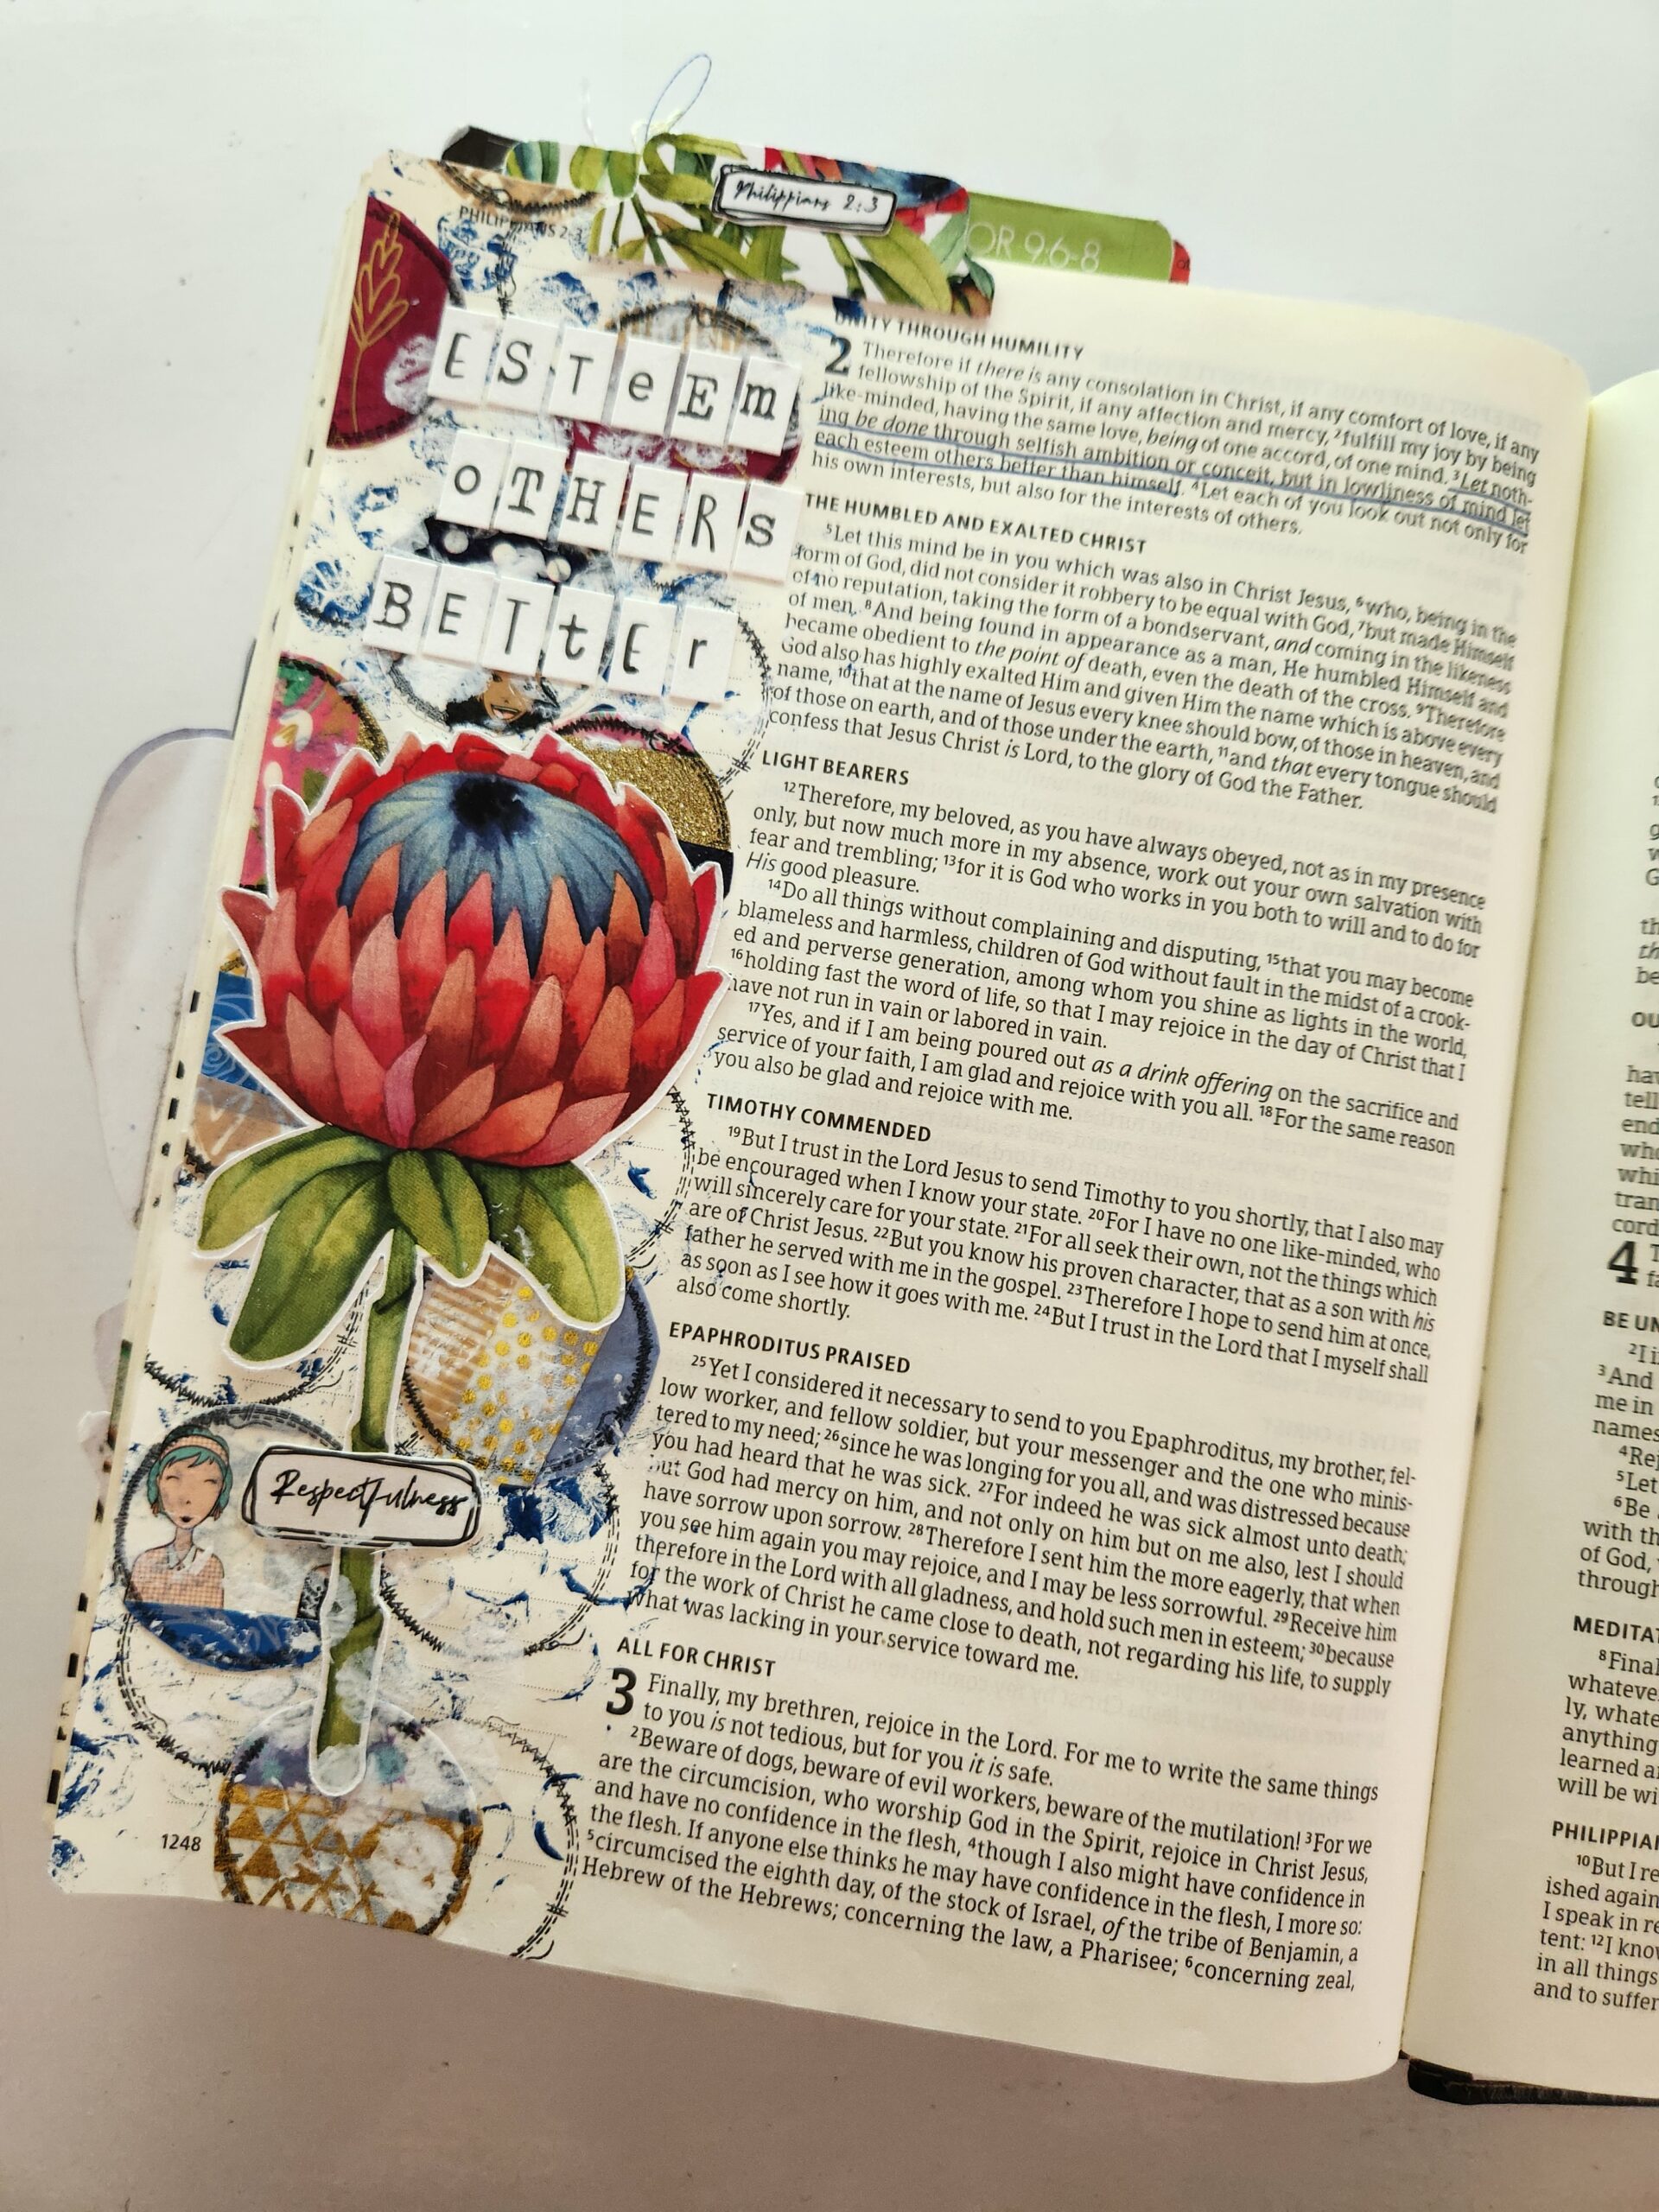 Philippians 2:3
OR 9:6-8
PHILIPPIANS 2-3
ESTeEm
oTHERs
BETtEr
Respectfulness
1248
UNITY THROUGH HUMILITY
2 Therefore if there is any consolation in Christ, if any comfort of love, if any
fellowship of the Spirit, if any affection and mercy, 2fulfill my joy by being
like-minded, having the same love, being of one accord, of one mind. 3Let noth-
ing be done through selfish ambition or conceit, but in lowliness of mind let
each esteem others better than himself. 4Let each of you look out not only for
his own interests, but also for the interests of others.
THE HUMBLED AND EXALTED CHRIST
5Let this mind be in you which was also in Christ Jesus, 6who, being in the
form of God, did not consider it robbery to be equal with God, 7but made Himself
of no reputation, taking the form of a bondservant, and coming in the likeness
of men. 8And being found in appearance as a man, He humbled Himself and
became obedient to the point of death, even the death of the cross. 9Therefore
God also has highly exalted Him and given Him the name which is above every
name, 10that at the name of Jesus every knee should bow, of those in heaven, and
of those on earth, and of those under the earth, 11and that every tongue should
confess that Jesus Christ is Lord, to the glory of God the Father.
LIGHT BEARERS
12Therefore, my beloved, as you have always obeyed, not as in my presence
only, but now much more in my absence, work out your own salvation with
fear and trembling; 13for it is God who works in you both to will and to do for
His good pleasure.
14Do all things without complaining and disputing, 15that you may become
blameless and harmless, children of God without fault in the midst of a crook-
ed and perverse generation, among whom you shine as lights in the world,
16holding fast the word of life, so that I may rejoice in the day of Christ that I
have not run in vain or labored in vain.
17Yes, and if I am being poured out as a drink offering on the sacrifice and
service of your faith, I am glad and rejoice with you all. 18For the same reason
you also be glad and rejoice with me.
TIMOTHY COMMENDED
19But I trust in the Lord Jesus to send Timothy to you shortly, that I also may
be encouraged when I know your state. 20For I have no one like-minded, who
will sincerely care for your state. 21For all seek their own, not the things which
are of Christ Jesus. 22But you know his proven character, that as a son with his
father he served with me in the gospel. 23Therefore I hope to send him at once,
as soon as I see how it goes with me. 24But I trust in the Lord that I myself shall
also come shortly.
EPAPHRODITUS PRAISED
25Yet I considered it necessary to send to you Epaphroditus, my brother, fel-
low worker, and fellow soldier, but your messenger and the one who minis-
tered to my need; 26since he was longing for you all, and was distressed because
you had heard that he was sick. 27For indeed he was sick almost unto death;
but God had mercy on him, and not only on him but on me also, lest I should
have sorrow upon sorrow. 28Therefore I sent him the more eagerly, that when
you see him again you may rejoice, and I may be less sorrowful. 29Receive him
therefore in the Lord with all gladness, and hold such men in esteem; 30because
for the work of Christ he came close to death, not regarding his life, to supply
what was lacking in your service toward me.
ALL FOR CHRIST
3 Finally, my brethren, rejoice in the Lord. For me to write the same things
to you is not tedious, but for you it is safe.
2Beware of dogs, beware of evil workers, beware of the mutilation! 3For we
are the circumcision, who worship God in the Spirit, rejoice in Christ Jesus,
and have no confidence in the flesh, 4though I also might have confidence in
the flesh. If anyone else thinks he may have confidence in the flesh, I more so:
5circumcised the eighth day, of the stock of Israel, of the tribe of Benjamin, a
Hebrew of the Hebrews; concerning the law, a Pharisee; 6concerning zeal,
4
BE UN
2I i
3And
me in
names
4Rej
5Let
6Be
with th
of God,
through
MEDITAT
8Final
whateve
ly, whate
anything
learned a
will be wi
PHILIPPIA
10But I re
ished again
I speak in re
tent: 12I know
in all things
and to suffer